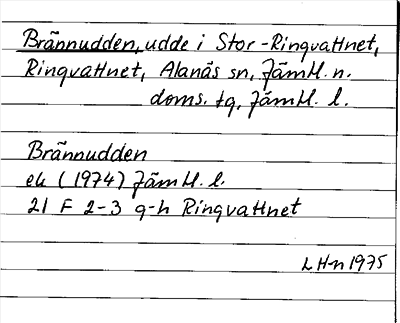 Brännudden, udde i Stor-Ringvattnet,
Ringvattnet, Alanäs sn, Jämtl. n.
doms. tg, Jämtl. l.
Brännudden
ek (1974) Jämtl. l.
21 F 2-3 g-h Ringvattnet
LH-n 1975